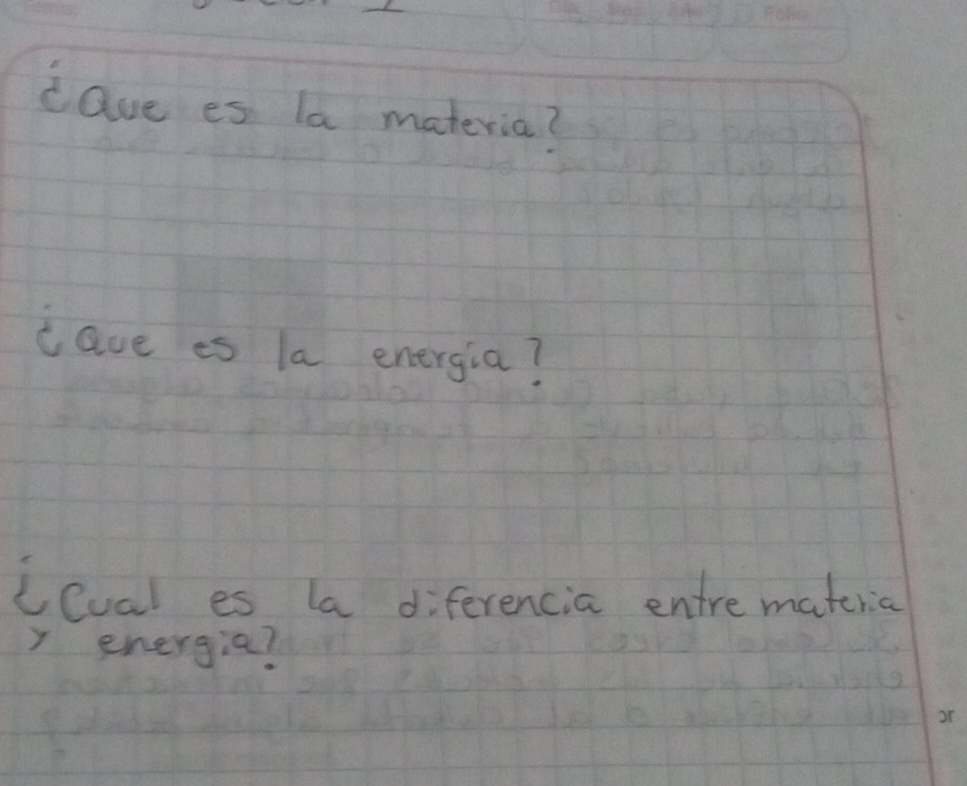 ¿Que es la materia?
¿Que es la energia?
¿Cual es la diferencia entre materia
y energia?